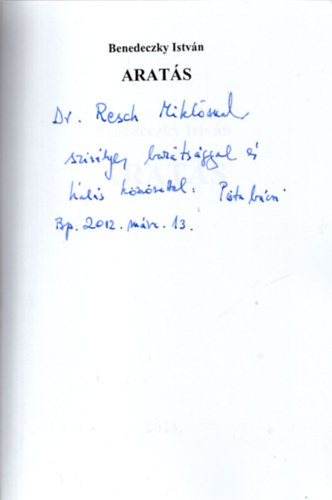 Benedeczky István
ARATÁS
Dr. Resch Miklósnak
szivélyes barátsággal és
hálás köszönettel: Pista bácsi
Bp. 2012. márc. 13.